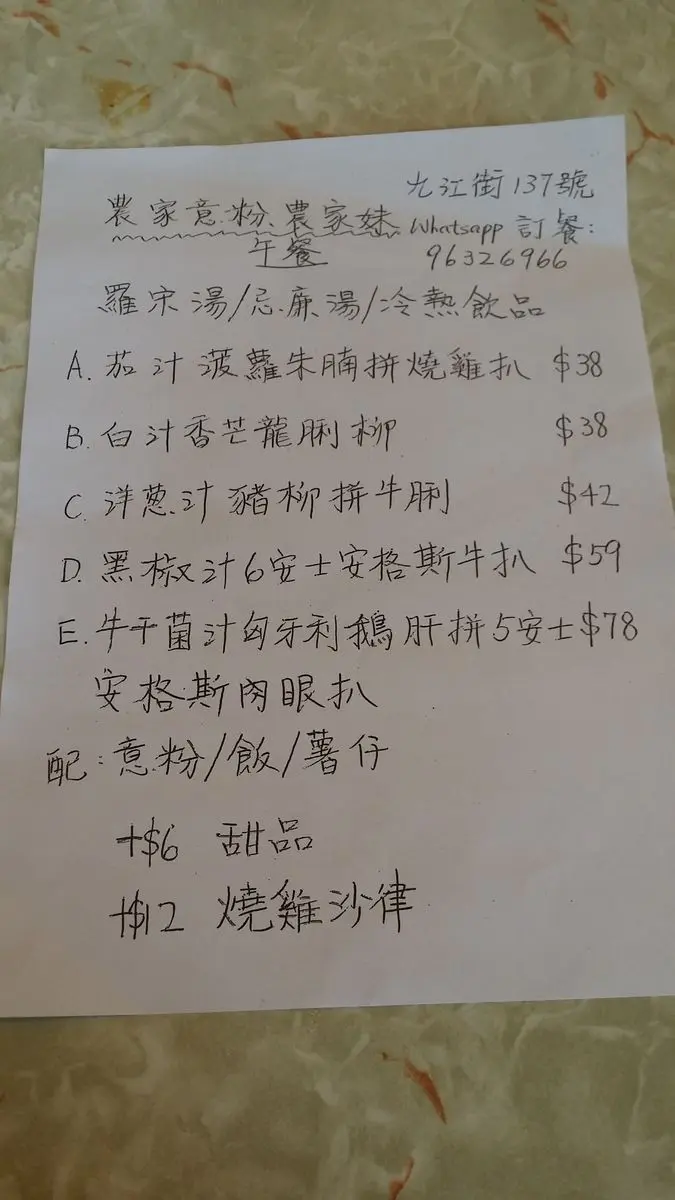 九江街137號
農家意粉農家妹 Whatsapp 訂餐:
午餐 96326966
羅宋湯/忌廉湯/冷熱飲品
A. 茄汁菠蘿朱腩拼燒雞扒 $38
B. 白汁香芒龍脷柳 $38
C. 洋蔥汁豬柳拼牛脷 $42
D. 黑椒汁6安士安格斯牛扒 $59
E. 牛干菌汁匈牙利鵝肝拼5安士 $78
安格斯肉眼扒
配:意粉/飯/薯仔
+$6 甜品
+$12 燒雞沙律